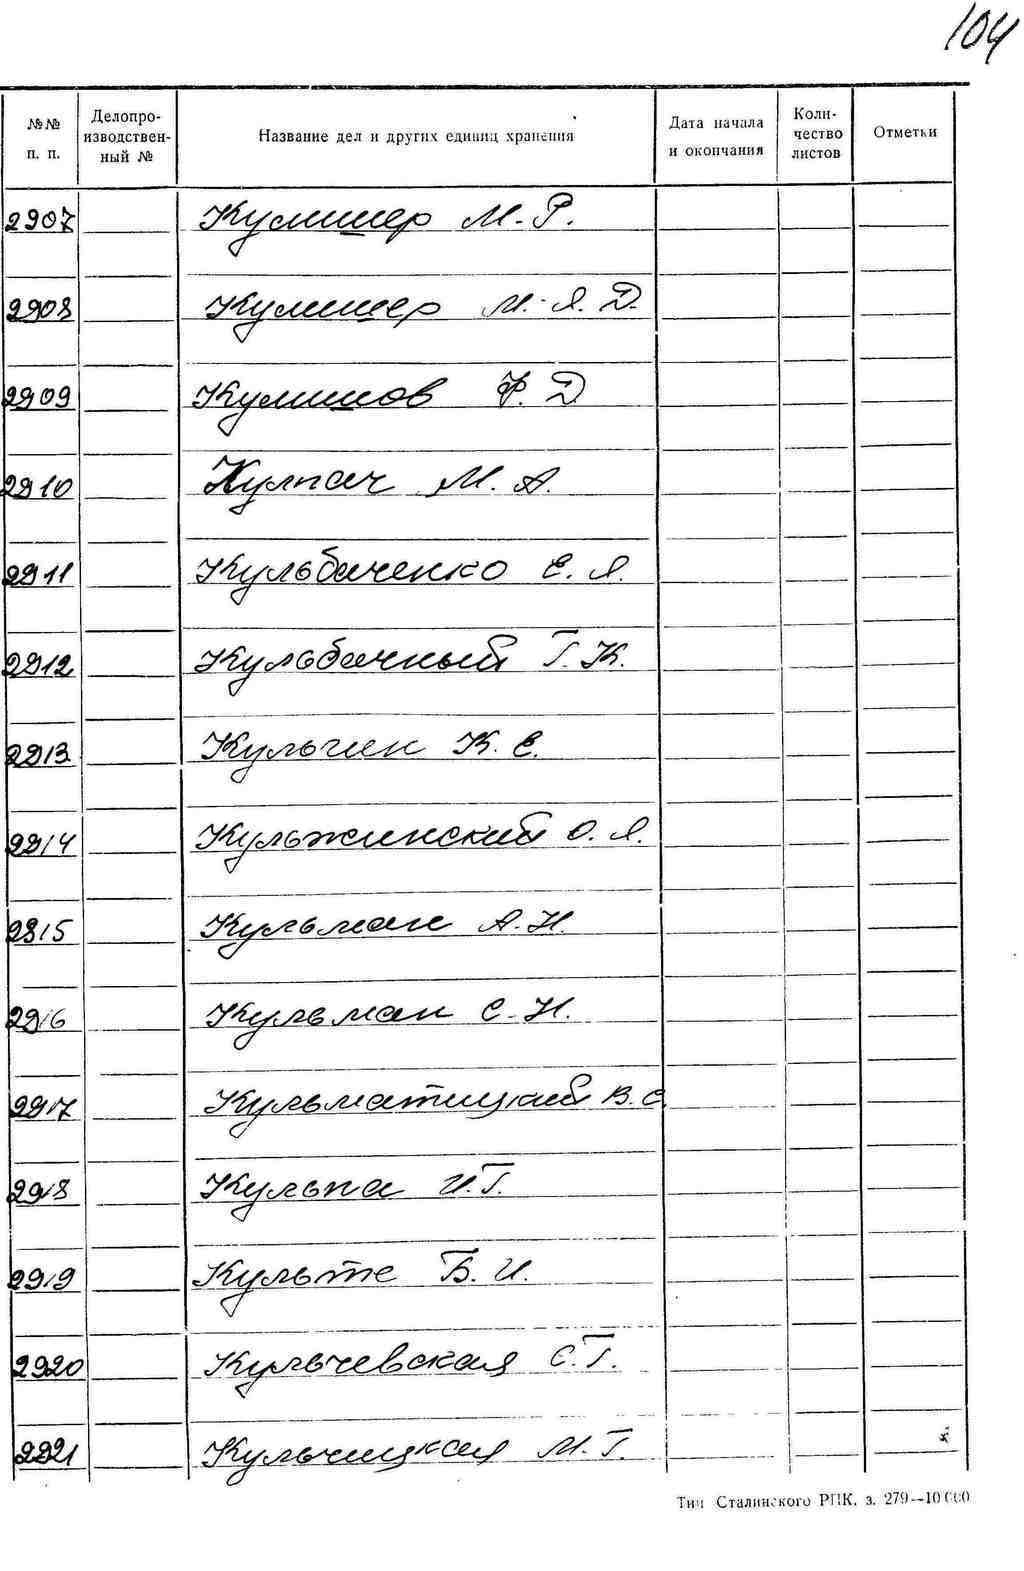 104
№№ п. п. Делопроизводственный № Название дел и других единиц хранения Дата начала и окончания Количество листов Отметки
2907 Кулишер М. Р.
2908 Кулишер М.-Я. Д.
2909 Кулишов Ф. Д.
2910 Кулпач М. А.
2911 Кульбаченко Е. Я.
2912 Кульбачный Г. К.
2913 Кульгин К. Е.
2914 Кульжинский О. Я.
2915 Кульман А. Н.
2916 Кульман С. Н.
2917 Кульматицкий В. С.
2918 Кульпа И. Г.
2919 Культе Б. И.
2920 Кульчевская С. Г.
2921 Кульчицкая М. Г.
Тип Сталинского РПК. з. 279—10000